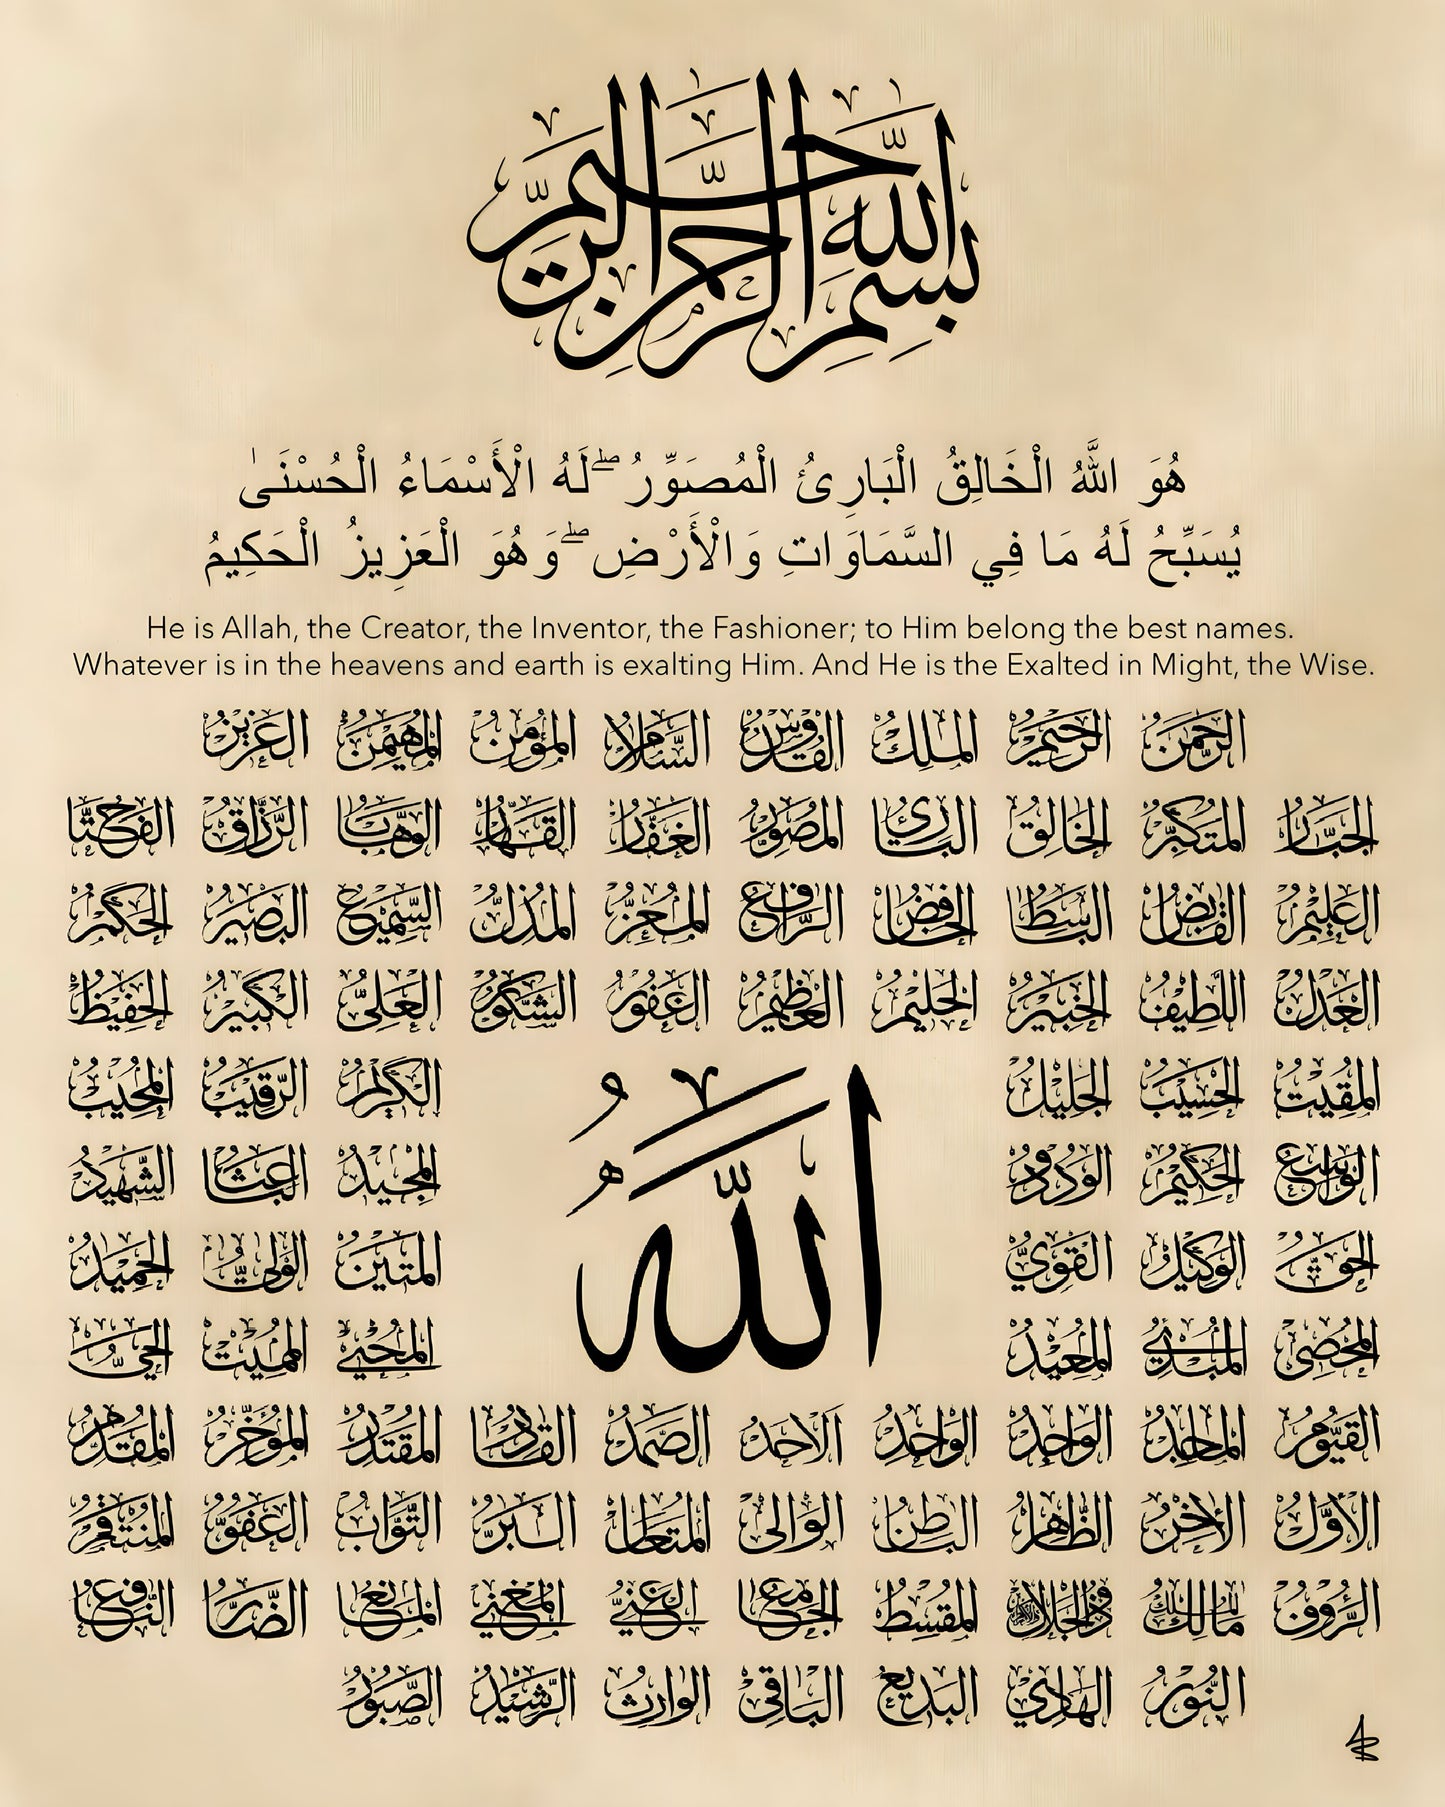 بسم الله الرحمن الرحيم
هُوَ اللَّهُ الْخَالِقُ الْبَارِئُ الْمُصَوِّرُ ۖ لَهُ الْأَسْمَاءُ الْحُسْنَىٰ
يُسَبِّحُ لَهُ مَا فِي السَّمَاوَاتِ وَالْأَرْضِ ۖ وَهُوَ الْعَزِيزُ الْحَكِيمُ
He is Allah, the Creator, the Inventor, the Fashioner; to Him belong the best names.
Whatever is in the heavens and earth is exalting Him. And He is the Exalted in Might, the Wise.
الرحمن الرحيم الملك القدوس السلام المؤمن المهيمن العزيز
الجبار المتكبر الخالق البارئ المصور الغفار القهار الوهاب الرزاق الفتاح
العليم القابض الباسط الخافض الرافع المعز المذل السميع البصير الحكم
العدل اللطيف الخبير الحليم العظيم الغفور الشكور العلي الكبير الحفيظ
المقيت الحسيب الجليل الكريم الرقيب المجيب
الواسع الحكيم الودود المجيد الباعث الشهيد
الحق الوكيل القوي المتين الولي الحميد
الله
المحصي المبدئ المعيد المحيي المميت الحي
القيوم الماجد الواجد الواحد الاحد الصمد القادر المقتدر المؤخر المقدم
الأول الأخر الظاهر الباطن الوالي المتعال البر التواب العفو المنتقم
الرؤوف مالك الملك ذو الجلال والإكرام المقسط الجامع الغني المغني المانع الضار النافع
النور الهادي البديع الباقي الوارث الرشيد الصبور